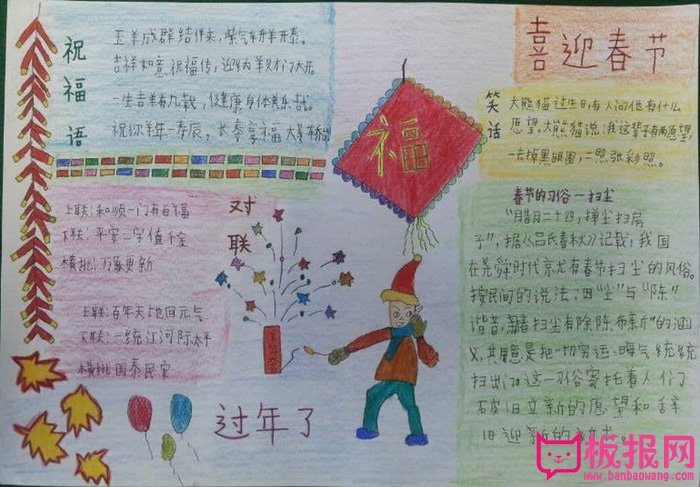 祝福语
王羊成群结伴来，紫气车舟羊开泰。
吉祥如意祝福传，迎羊门大开。
三生吉羊有九载，健康身体美乐哉。
祝你羊年一春辰，长寿享福
喜迎春节
笑话
大熊猫过生日，有人问他有什么
愿望，大熊猫说：我这辈子有两愿望，
一去掉黑眼圈，二照张彩照。
福
对联
上联：和顺一门有百福
下联：平安二字值千金
横批：万象更新
上联：百年天地回元气
下联：一统江河际太平
横批国泰民安
春节的习俗一扫尘
"腊月二十四，掸尘扫房
子"，据《吕氏春秋》记载，我国
在尧舜时代就有春节扫尘的风俗。
按民间的说法：因"尘"与"陈"
谐音，新春扫尘有"除陈布新"的涵
义，其用意是把一切穷运、晦气统统
扫出门。这一习俗寄托着人们
破旧立新的愿望和辞
旧迎新的祈求。
过年了
板报网
www.banbaowang.com